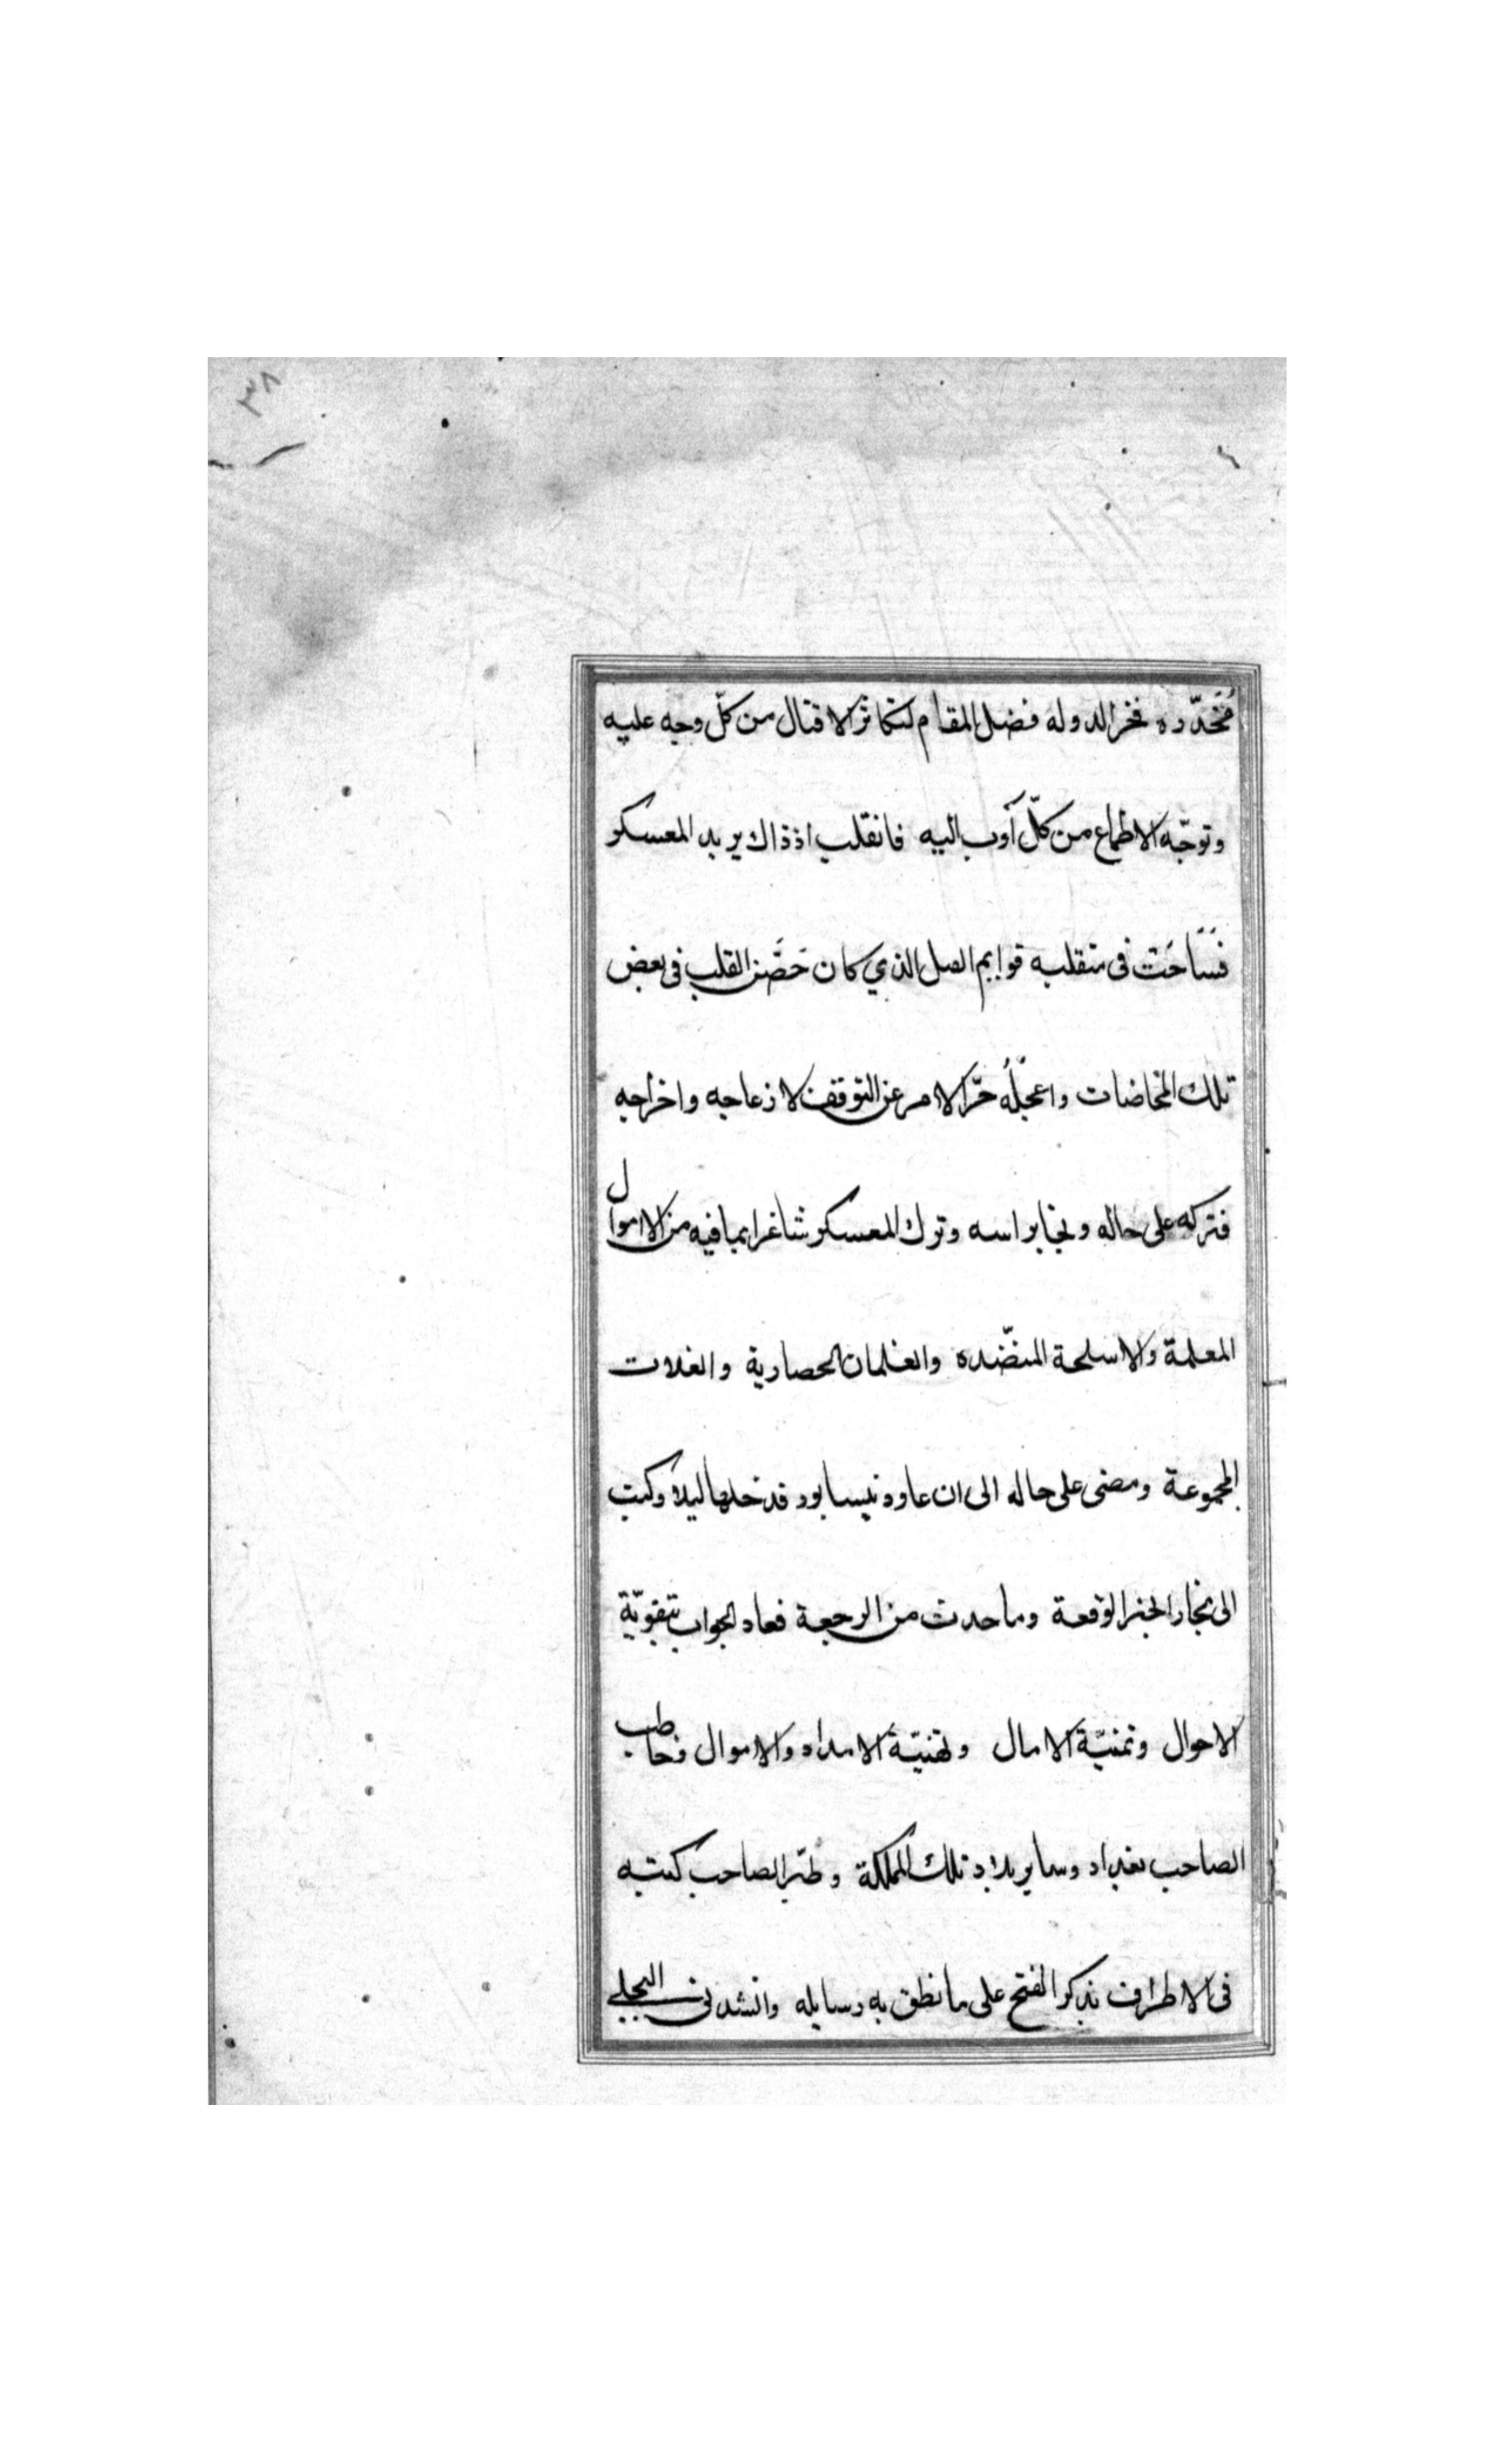 مُخَدّره فخر الدوله فضل المقام لتكاثر الاقتال من كلّ وجه عليه
وتوجّه الاطماع من كلّ أوب اليه فانقلب اذ ذاك يريد المعسكر
فسَاحَت فى منقلبه قوايم الفيل الذي كان حَضَّن القلب فى بعض
تلك المخاضات واعجلهُ حَرّ الامر عن التوقف لازعاجه واخراجه
فتركه على حاله ونجا براسه وترك المعسكر شاغرا بما فيه من الاموال
المعلمة والاسلحة المنضّده والغلمان الحصارية والغلات
المجموعة ومضى على حاله الى ان عاود نيسابور فدخلها ليلا وكتب
الى بخارا بخبر الوقعة وما حدث من الرجعة فعاد الجواب بتقويّة
الاحوال وتمنيّة الامال وتهنيّة الامداد والاموال وخاطب
الصاحب بغداد وساير بلاد تلك المملكة وطيّر الصاحب كتبه
فى الاطراف بذكر الفتح على ما نطق به رسايله وانشدنى البجلي